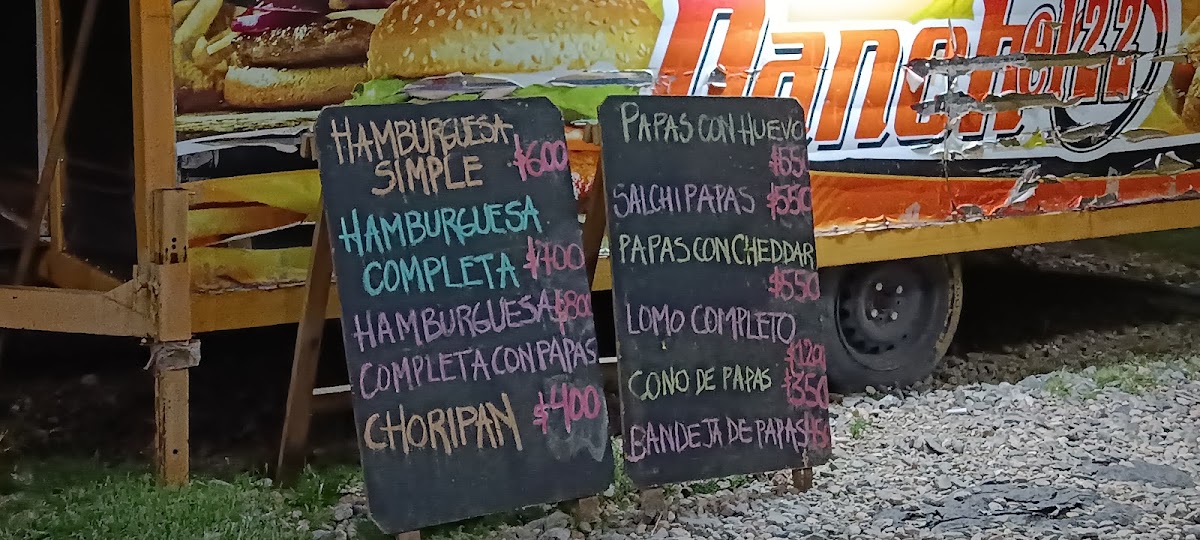 HAMBURGUESA
SIMPLE $600
HAMBURGUESA
COMPLETA $700
HAMBURGUESA $800
COMPLETA CON PAPAS
CHORIPAN $400
PAPAS CON HUEVO
$550
SALCHIPAPAS $550
PAPAS CON CHEDDAR
$550
LOMO COMPLETO
CONO DE PAPAS $350
BANDEJA DE PAPAS